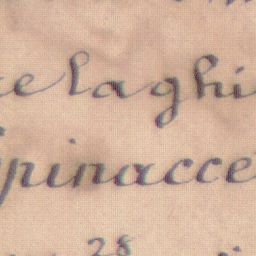 elaghi
Spinacce
28